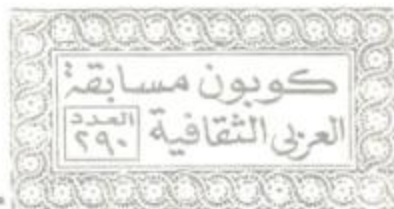 كوبون مسابقة
العربى الثقافية
العدد
٢٩٠